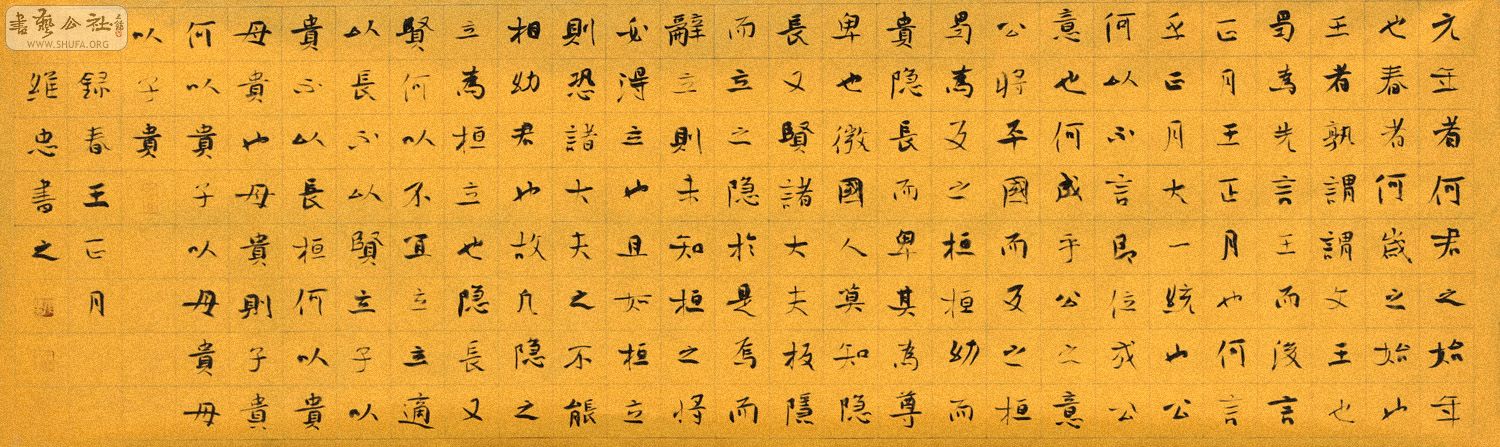 元年者何君之始年
也春者何歲之始也
王者孰謂謂文王也
曷為先言王而後言
正月王正月也何言
乎正月大一統也公
何以不言即位成公
意也何成乎公之意
公將平國而反之桓
曷為反之桓桓幼而
貴隐長而卑其為尊
卑也微國人莫知隐
長又賢諸大夫扳隱
而立之隐於是焉而
辭立則未知桓之將
必得立也且如桓立
則恐諸大夫之不能
相幼君也故凡隐之
立為桓立也隐長又
賢何以不宜立立適
以長不以賢立子以
貴不以長桓何以貴
母貴也母貴則子貴
何以貴子以母貴母
以子貴
錄春王正月
維忠書之
書藝公社
WWW.SHUFA.ORG